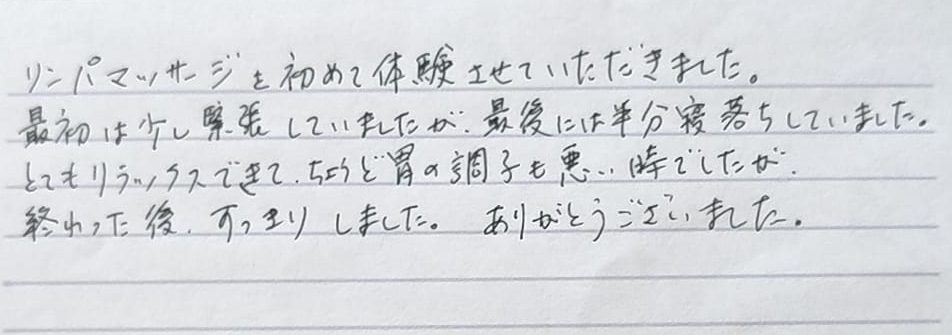 リンパマッサージを初めて体験させていただきました。
最初は少し緊張していましたが、最後には半分寝落ちしていました。
とてもリラックスできて、ちょうど胃の調子も悪い時でしたが、
終わった後、すっきりしました。ありがとうございました。